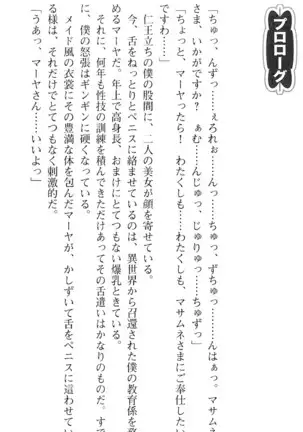 プロローグ
「ちゅっ、んずっ……ぇろれぉ……んっ……ちゅっ、ずちゅっ……んはぁっ。マサムネ
さま、いかがですか？　ぁむ……んじゅっ、じゅりゅっ……ちゅずっ」
「ちょっと、マーヤったら！　わたくしも……わたくしも、マサムネさまにご奉仕したい
ですわ……」
　仁王立ちの僕の股間に、二人の美女が顔を寄せている。
　今、舌をねっとりとペニスに絡ませているのは、異世界から召還された僕の教育係を務
めるマーヤだ。年上で高身長、おまけにとてつもない爆乳ときている。
　それに、何年も性技の訓練を積んできただけあってその舌遣いはかなりのものだ。すで
に、僕の怒張はギンギンに硬くなっている。
　メイド風の衣裳にその豊満な体を包んだマーヤが、かしずいて舌をペニスに這わせてい
る様は、それだけでとてつもなく刺激的だ。
「うあっ、マーヤさん……いいよっ」